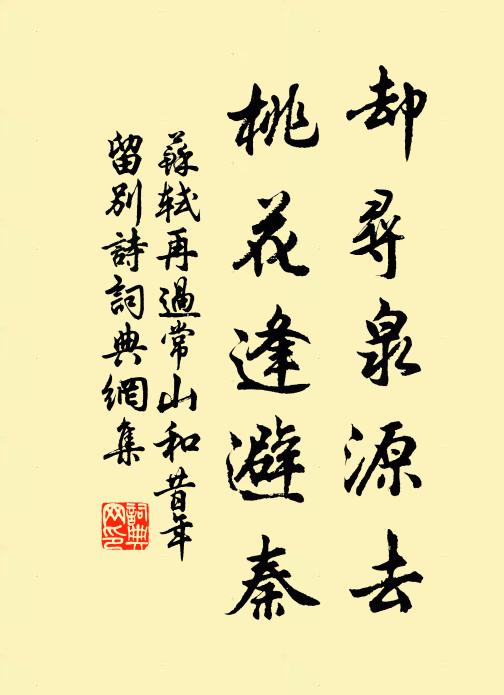 却尋泉源去
桃花逢避秦
蘇軾再過常山和昔年
留別詩詞典網集
詞典
网印